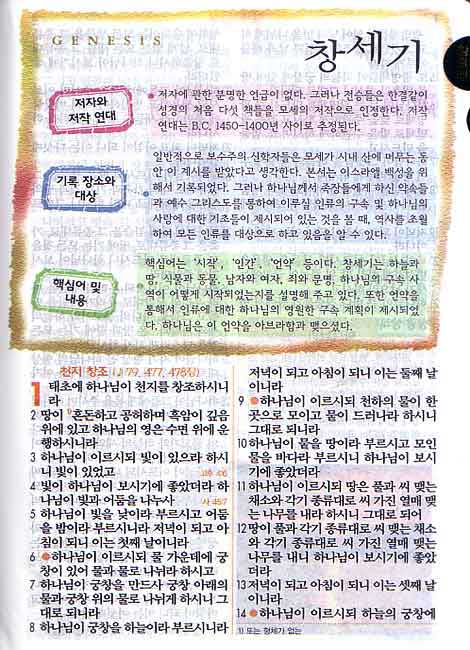 GENESIS
창세기
저자와
저작 연대
저자에 관한 분명한 언급이 없다. 그러나 전승들은 한결같이
성경의 처음 다섯 책들을 모세의 저작으로 인정한다. 저작
연대는 B.C. 1450~1400년 사이로 추정된다.
기록 장소와
대상
일반적으로 보수주의 신학자들은 모세가 시내 산에 머무는 동
안 이 계시를 받았다고 생각한다. 본서는 이스라엘 백성을 위
해서 기록되었다. 그러나 하나님께서 족장들에게 하신 약속들
과 예수 그리스도를 통하여 이루실 인류의 구속 및 하나님의
사랑에 대한 기초들이 제시되어 있는 것을 볼 때, 역사를 초월
하여 모든 인류를 대상으로 하고 있음을 알 수 있다.
핵심어 및
내용
핵심어는 '시작', '인간', '언약' 등이다. 창세기는 하늘과
땅, 식물과 동물, 남자와 여자, 죄와 문명, 하나님의 구속 사
역이 어떻게 시작되었는지를 설명해 주고 있다. 또한 언약을
통해서 인류에 대한 하나님의 영원한 구속 계획이 제시되었
다. 하나님은 이 언약을 아브라함과 맺으셨다.
천지 창조 (♪79, 477, 478장)
1 태초에 하나님이 천지를 창조하시니
라
2 땅이 1)혼돈하고 공허하며 흑암이 깊음
위에 있고 하나님의 영은 수면 위에 운
행하시니라
3 하나님이 이르시되 빛이 있으라 하시
니 빛이 있었고 고후 4:6
4 빛이 하나님이 보시기에 좋았더라 하
나님이 빛과 어둠을 나누사 사 45:7
5 하나님이 빛을 낮이라 부르시고 어둠
을 밤이라 부르시니라 저녁이 되고 아
침이 되니 이는 첫째 날이니라
6 ●하나님이 이르시되 물 가운데에 궁
창이 있어 물과 물로 나뉘라 하시고
7 하나님이 궁창을 만드사 궁창 아래의
물과 궁창 위의 물로 나뉘게 하시니 그
대로 되니라
8 하나님이 궁창을 하늘이라 부르시니라
저녁이 되고 아침이 되니 이는 둘째 날
이니라
9 ●하나님이 이르시되 천하의 물이 한
곳으로 모이고 뭍이 드러나라 하시니
그대로 되니라
10 하나님이 뭍을 땅이라 부르시고 모인
물을 바다라 부르시니 하나님이 보시
기에 좋았더라
11 하나님이 이르시되 땅은 풀과 씨 맺는
채소와 각기 종류대로 씨 가진 열매 맺
는 나무를 내라 하시니 그대로 되어
12 땅이 풀과 각기 종류대로 씨 맺는 채소
와 각기 종류대로 씨 가진 열매 맺는
나무를 내니 하나님이 보시기에 좋았
더라
13 저녁이 되고 아침이 되니 이는 셋째 날
이니라
14 ●하나님이 이르시되 하늘의 궁창에
1) 또는 형체가 없는